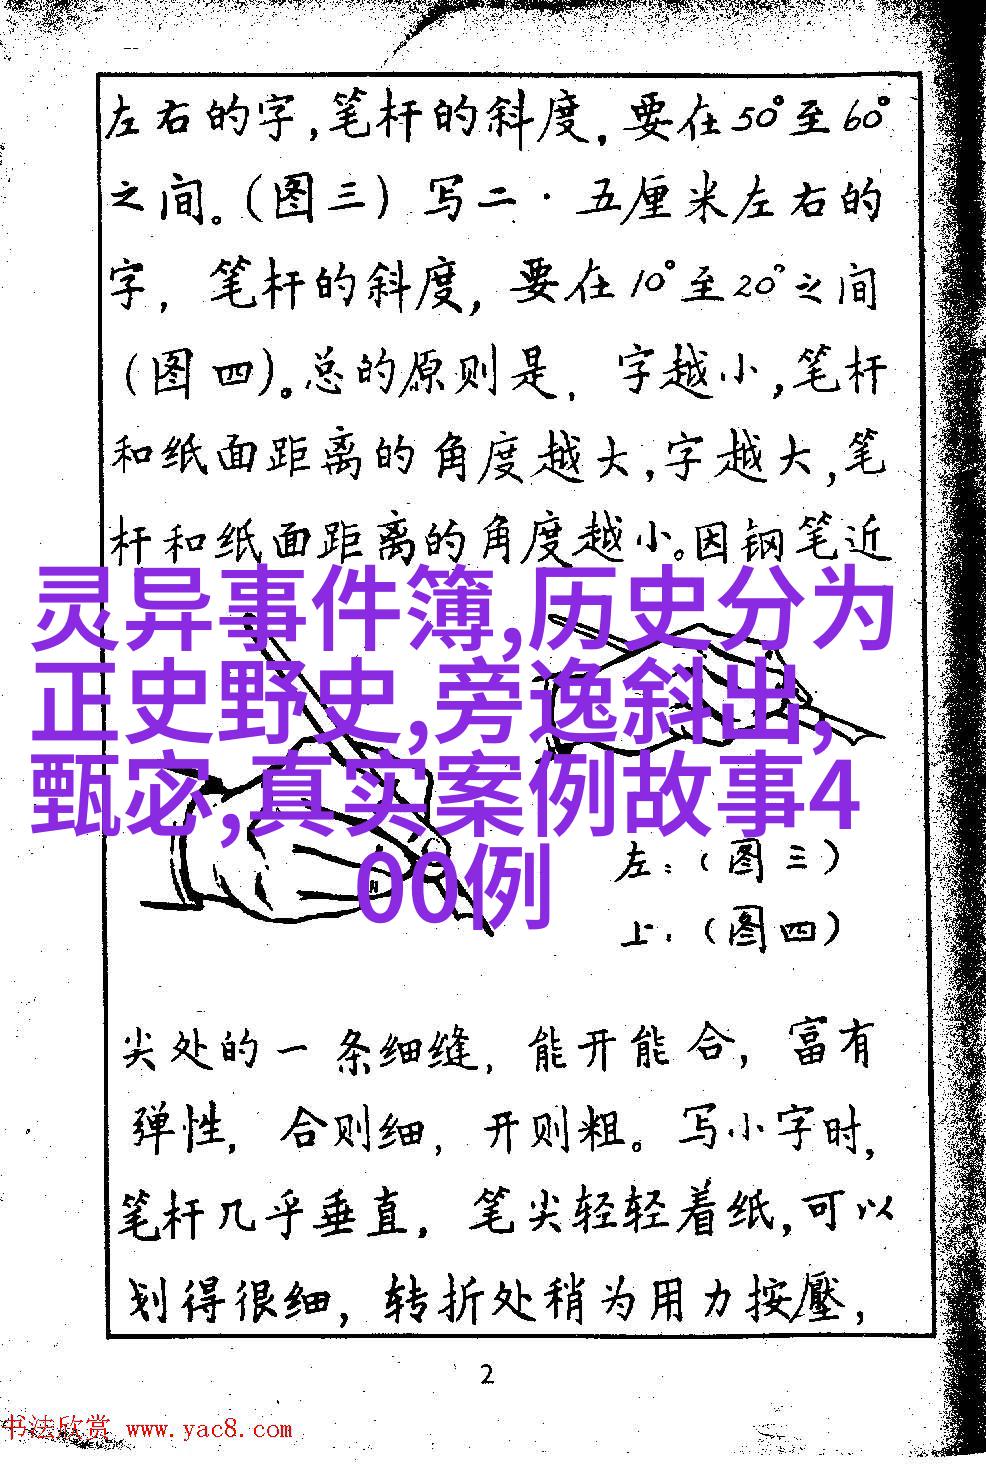 左右的字,笔杆的斜度,要在50°至60°
之间。(图三)写二·五厘米左右的
字,笔杆的斜度,要在10°至20°之间
(图四)。总的原则是,字越小,笔杆
和纸面距离的角度越大,字越大,笔
杆和纸面距离的角度越小。因钢笔近
灵异事件簿,历史分为
正史野史,旁逸斜出,
甄宓,真实案例故事4
00例
左:(图三)
上:(图四)
尖处的一条细缝,能开能合,富有
弹性,合则细,开则粗。写小字时,
笔杆几乎垂直,笔尖轻轻着纸,可以
划得很细,转折处稍为用力按壓,
2
书法欣赏 www.yac8.com